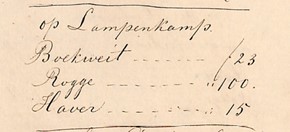 op Lampenkamp.
Boekweit - - - - - - ƒ 23
Rogge - - - - - - - " 100.
Haver - - - - - - - " 15